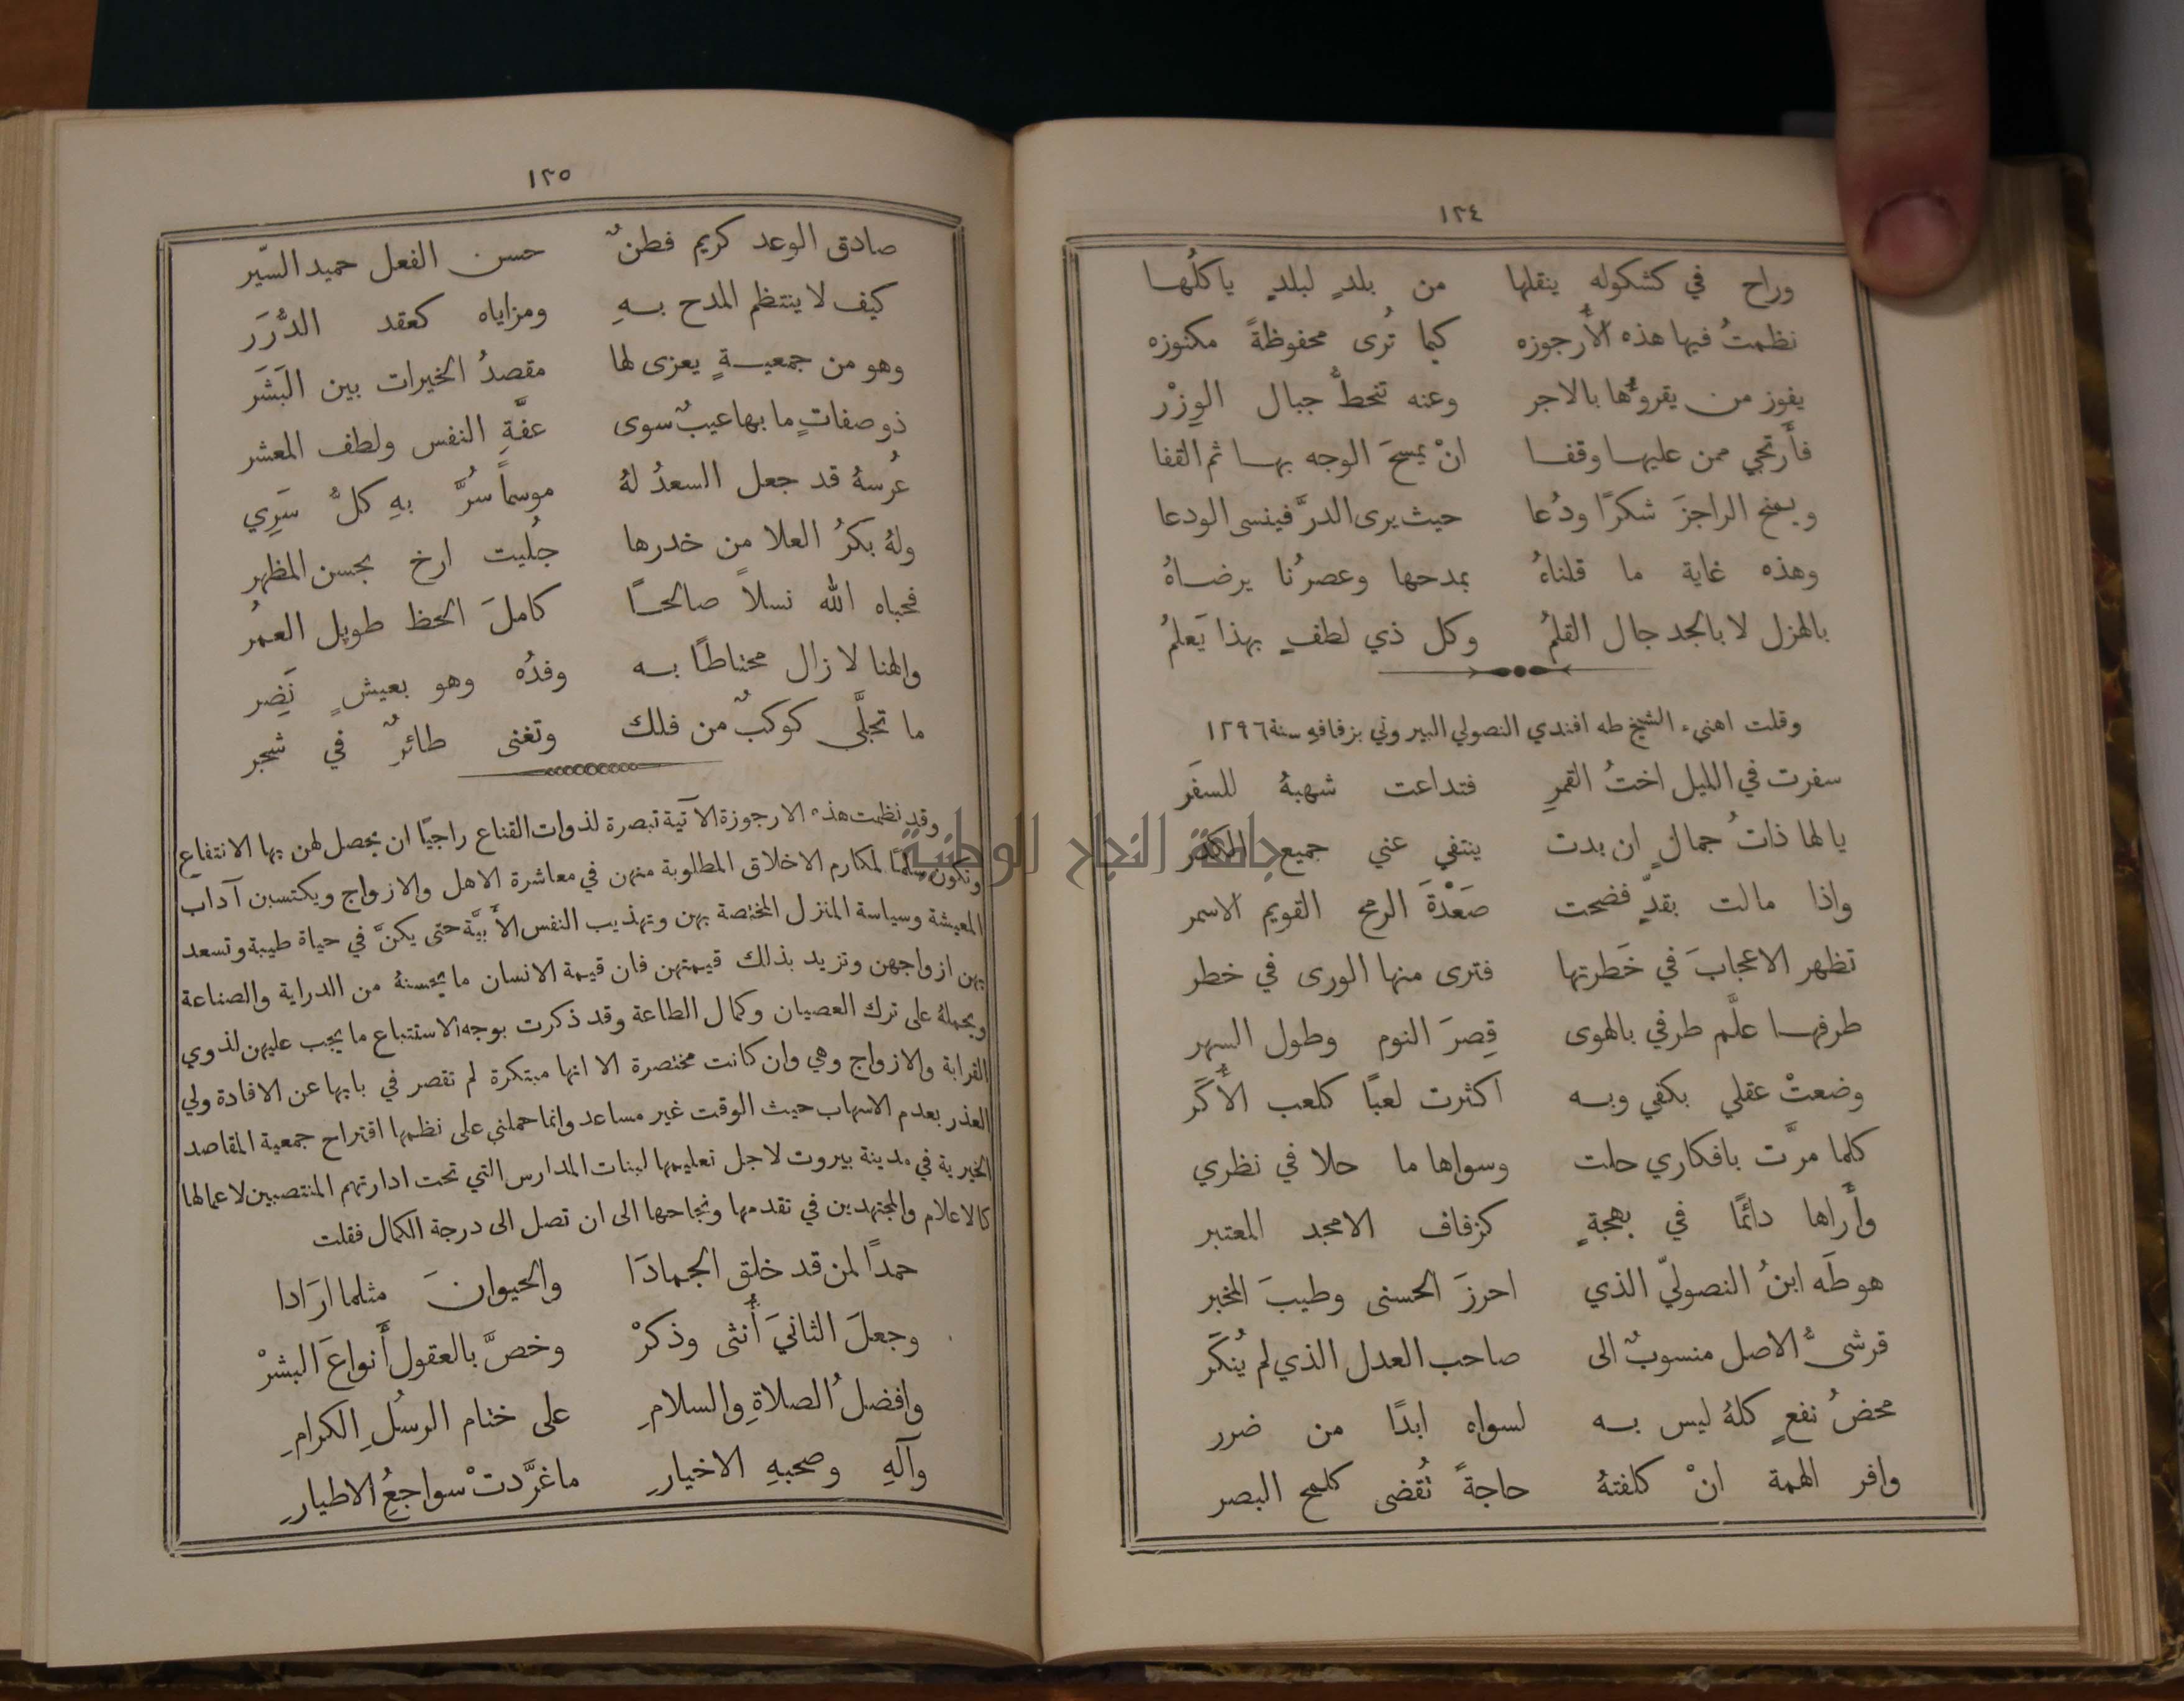 ١٢٤
وراح في كشكوله ينقلها من بلدٍ لبلدٍ ياكلُها
نظمتُ فيها هذه الأرجوزه كيما تُرى محفوظةً مكنوزه
يفوز من يقروُّها بالاجر وعنه تنحطُّ جبال الوِزْر
فأَرتجي ممن عليها وقفا انْ يمسحَ الوجه بها ثم القفا
ويمنح الراجزَ شكرًا ودُعا حيث يرى الدرَّ فينسى الودعا
وهذه غاية ما قلناهُ بمدحها وعصرُنا يرضاهُ
بالهزل لا بالجد جال القلمُ وكل ذي لطفٍ بهذا يَعلمُ
وقلت اهنيء الشيخ طه افندي النصولي البيروتي بزفافهِ سنة ١٢٩٦
سفرت في الليل اختُ القمرِ فتداعت شهبهُ للسفَر
يالها ذاتُ جمالٍ ان بدت ينتفي عني جميع الكدر
واذا مالت بقدٍّ فضحت صَعْدَةَ الرمح القويم الاسمر
تظهر الاعجابَ في خَطرتها فترى منها الورى في خطر
طرفها علَّم طرفي بالهوى قِصرَ النوم وطول السهر
وضعتْ عقلي بكفي وبه اكثرت لعبًا كلعب الأُكَر
كلما مرَّت بافكاري حلت وسواها ما حلا في نظري
وأَراها دائمًا في بهجةٍ كزفاف الامجد المعتبر
هو طَه ابنُ النصوليّ الذي احرزَ الحسنى وطيبَ المخبر
قرشيُّ الاصل منسوبٌ الى صاحب العدل الذي لم يُنكَر
محضُ نفعٍ كلهُ ليس به لسواه ابدًا من ضرر
وافر الهمة انْ كلفتهُ حاجةً تُقضى كلمح البصر
١٢٥
صادق الوعد كريم فطنٌ حسن الفعل حميد السّير
كيف لا ينتظم المدح بهِ ومزاياه كعقد الدُّرَر
وهو من جمعيةٍ يعزى لها مقصدُ الخيرات بين البَشَر
ذو صفاتٍ ما بها عيبٌ سوى عفَّةِ النفس ولطف المعشر
عُرسهُ قد جعل السعدُ لهُ موسماً سُرَّ بهِ كلُّ سَرِي
ولهُ بكرُ العلا من خدرها جُليت ارخ بحسن المظهر
فحباه الله نسلاً صالحًا كاملَ الحظ طويل العمُر
والهنا لا زال محتاطًا به وفدُه وهو بعيشٍ نَضِر
ما تجلَّى كوكبٌ من فلك وتغنى طائرٌ في شجر
وقد نظمت هذه الارجوزة الآتية تبصرة لذوات القناع راجيًا ان يحصل لهن بها الانتفاع
وتكون سلمًا لمكارم الاخلاق المطلوبة منهن في معاشرة الاهل والازواج ويكتسبن آداب
المعيشة وسياسة المنزل المختصة بهن وتهذيب النفس الأَبيَّة حتى يكنَّ في حياة طيبة وتسعد
بهن ازواجهن وتزيد بذلك قيمتهن فان قيمة الانسان ما يحسنهُ من الدراية والصناعة
ويحملهُ على ترك العصيان وكمال الطاعة وقد ذكرت بوجه الاستتباع ما يجب عليهن لذوي
القرابة والازواج وهي وان كانت مختصرة الا انها مبتكرة لم تقصر في بابها عن الافادة ولي
العذر بعدم الاسهاب حيث الوقت غير مساعد وانما حملني على نظمها اقتراح جمعية المقاصد
الخيرية في مدينة بيروت لاجل تعليمها لبنات المدارس التي تحت ادارتهم المنتصبين لاعمالها
كالاعلام والمجتهدين في تقدمها ونجاحها الى ان تصل الى درجة الكمال فقلت
حمدًا لمن قد خلق الجمادَا والحيوانَ مثلما ارَادا
وجعلَ الثانيَ أُنثى وذكرْ وخصَّ بالعقول أَنواعَ البشرْ
وافضلُ الصلاةِ والسلامِ على ختام الرسُلِ الكرامِ
وآلهِ وصحبهِ الاخيارِ ما غرَّدتْ سواجعُ الاطيارِ
جامعة النجاح الوطنية